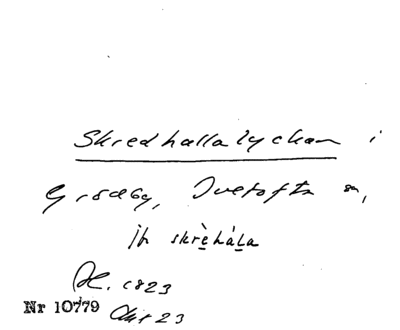 Skredhallalyckan i
Grödby, Ivetofta sn,
jfr skrèhála
1823
Nr 10779
Akt 23